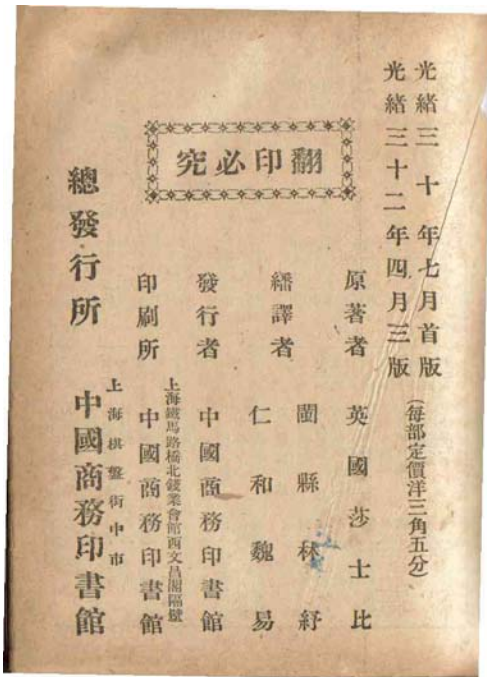 光緒三十年七月首版
光緒三十二年四月三版
(每部定價洋三角五分)
翻印必究
原著者 英國莎士比
繙譯者 閩縣林紓
仁和魏易
發行者 中國商務印書館
上海鐵馬路橋北錢業會館西文昌閣隔壁
印刷所 中國商務印書館
上海棋盤街中市
總發行所 中國商務印書館